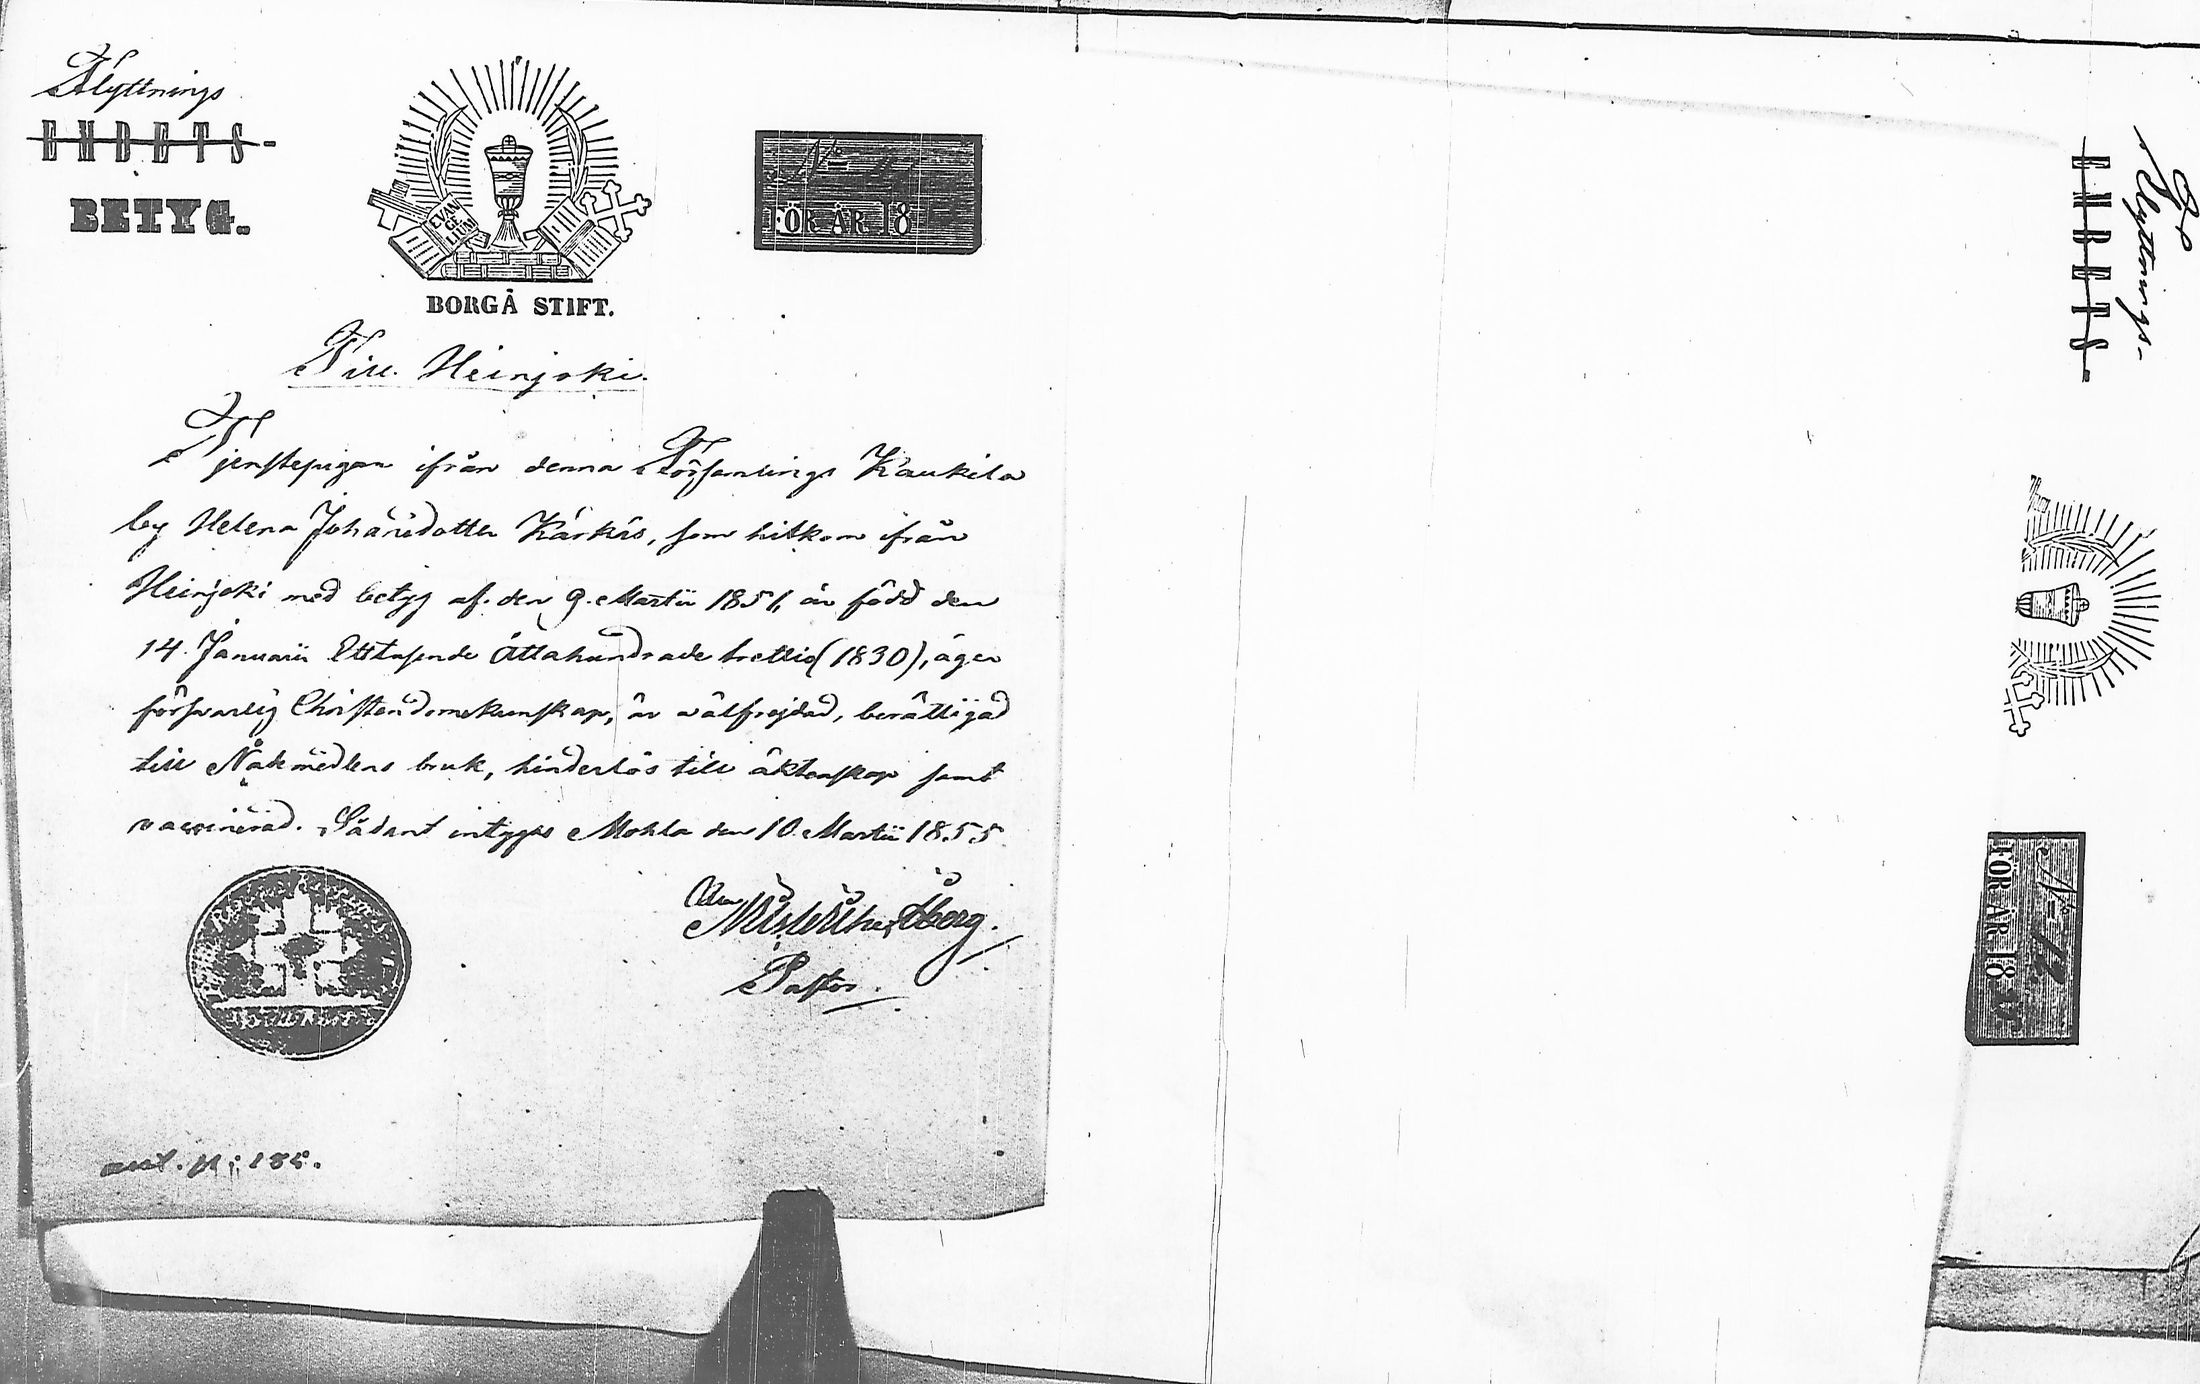 Flyttnings
EMBETS-
BETYG.
EVAN
GE
LIUM
BORGÅ STIFT.
No
FÖR ÅR 18
Till Heinjoki.
Tjenstepigan ifrån denna Församlings Kaukila
by Helena Johansdotter Kärkäs, som hitkom ifrån
Heinjoki med betyg af den 9. Martii 1851, är född den
14. Januarii Ettusende Åttahundrade trettio (1830), äger
försvarlig Christendomskunskap, är välfrejdad, berättigad
till Nådmedlens bruk, hinderlös till äktenskap samt
vaccinerad. Sådant intygas Mohla den 10. Martii 1855
Öberg.
Pastor.
Flyttnings-
EMBETS-
No
FÖR ÅR 18